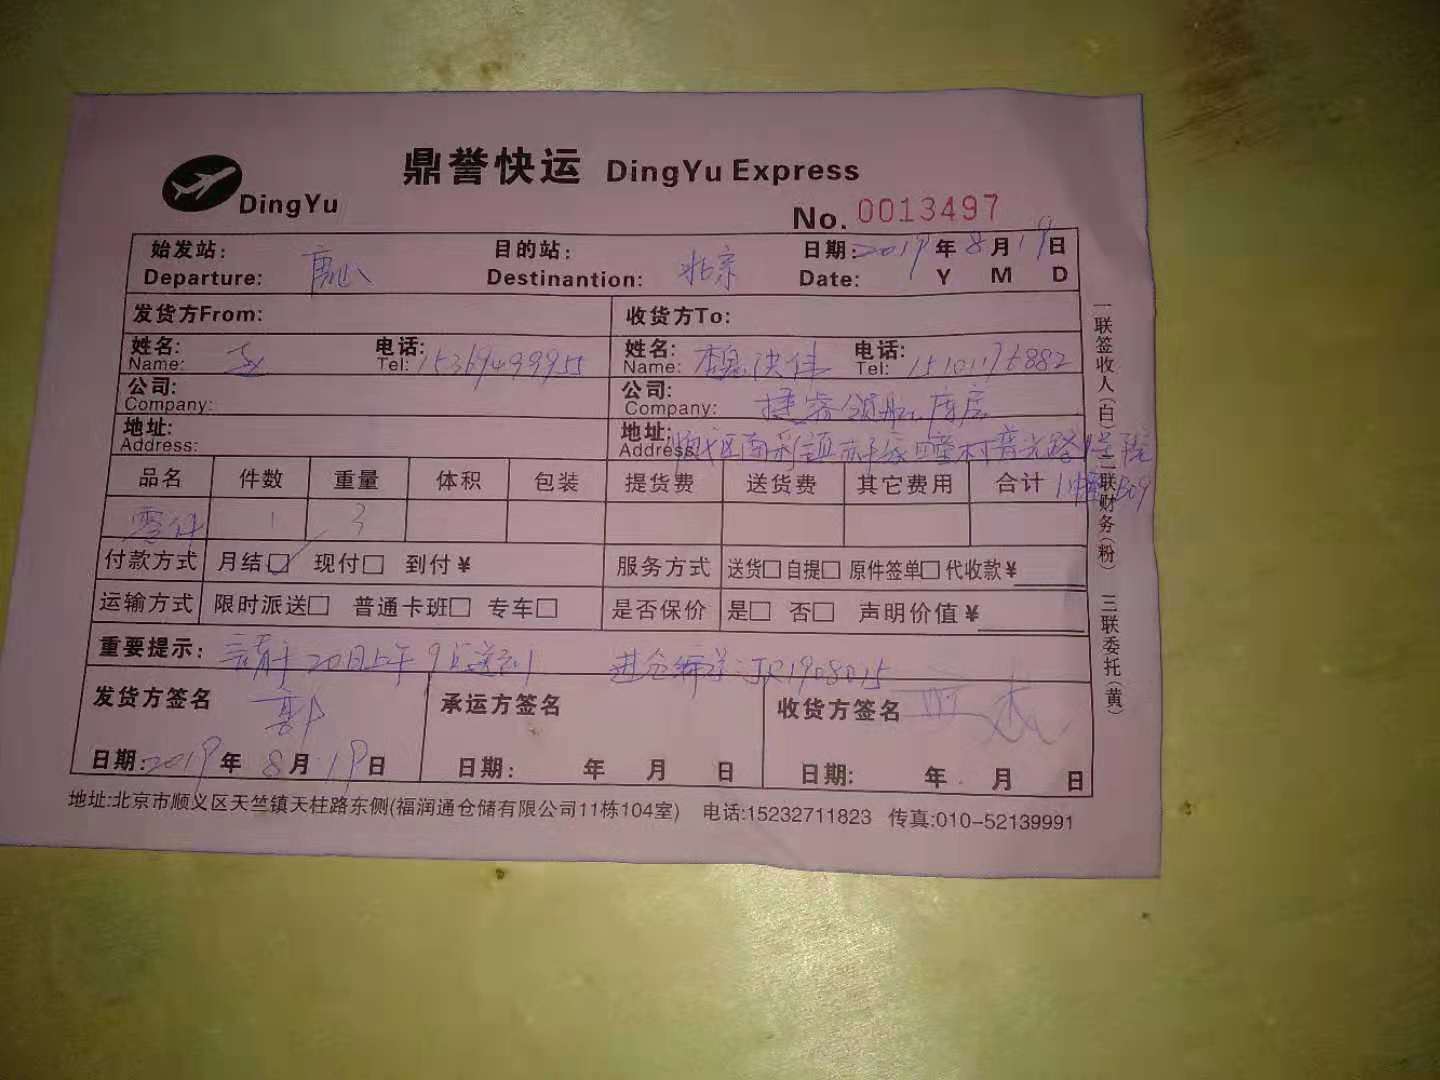 鼎誉快运 DingYu Express
DingYu
No. 0013497
始发站: 唐山 目的站: 北京 日期: 2019 年 8 月 19 日
Departure: Destinantion: Date: Y M D
发货方From: 收货方To:
姓名: 电话: 15369499955 姓名: 电话: 15101176882
Name: Tel: Name: Tel:
公司: 公司:
Company: Company:
地址: 地址: 顺义区南彩镇
Address: Address:
品名 件数 重量 体积 包装 提货费 送货费 其它费用 合计 1幢B09
零件 1 3
付款方式 月结□ 现付□ 到付¥ 服务方式 送货□自提□ 原件签单□代收款¥
运输方式 限时派送□ 普通卡班□ 专车□ 是否保价 是□ 否□ 声明价值¥
重要提示: 请于20日上午9点送到 进仓编号:JR1908015
发货方签名 郭 承运方签名 收货方签名
日期: 2019 年 8 月 19 日 日期: 年 月 日 日期: 年 月 日
地址:北京市顺义区天竺镇天柱路东侧(福润通仓储有限公司11栋104室) 电话:15232711823 传真:010-52139991
一联签收人(白) 二联财务(粉) 三联委托(黄)